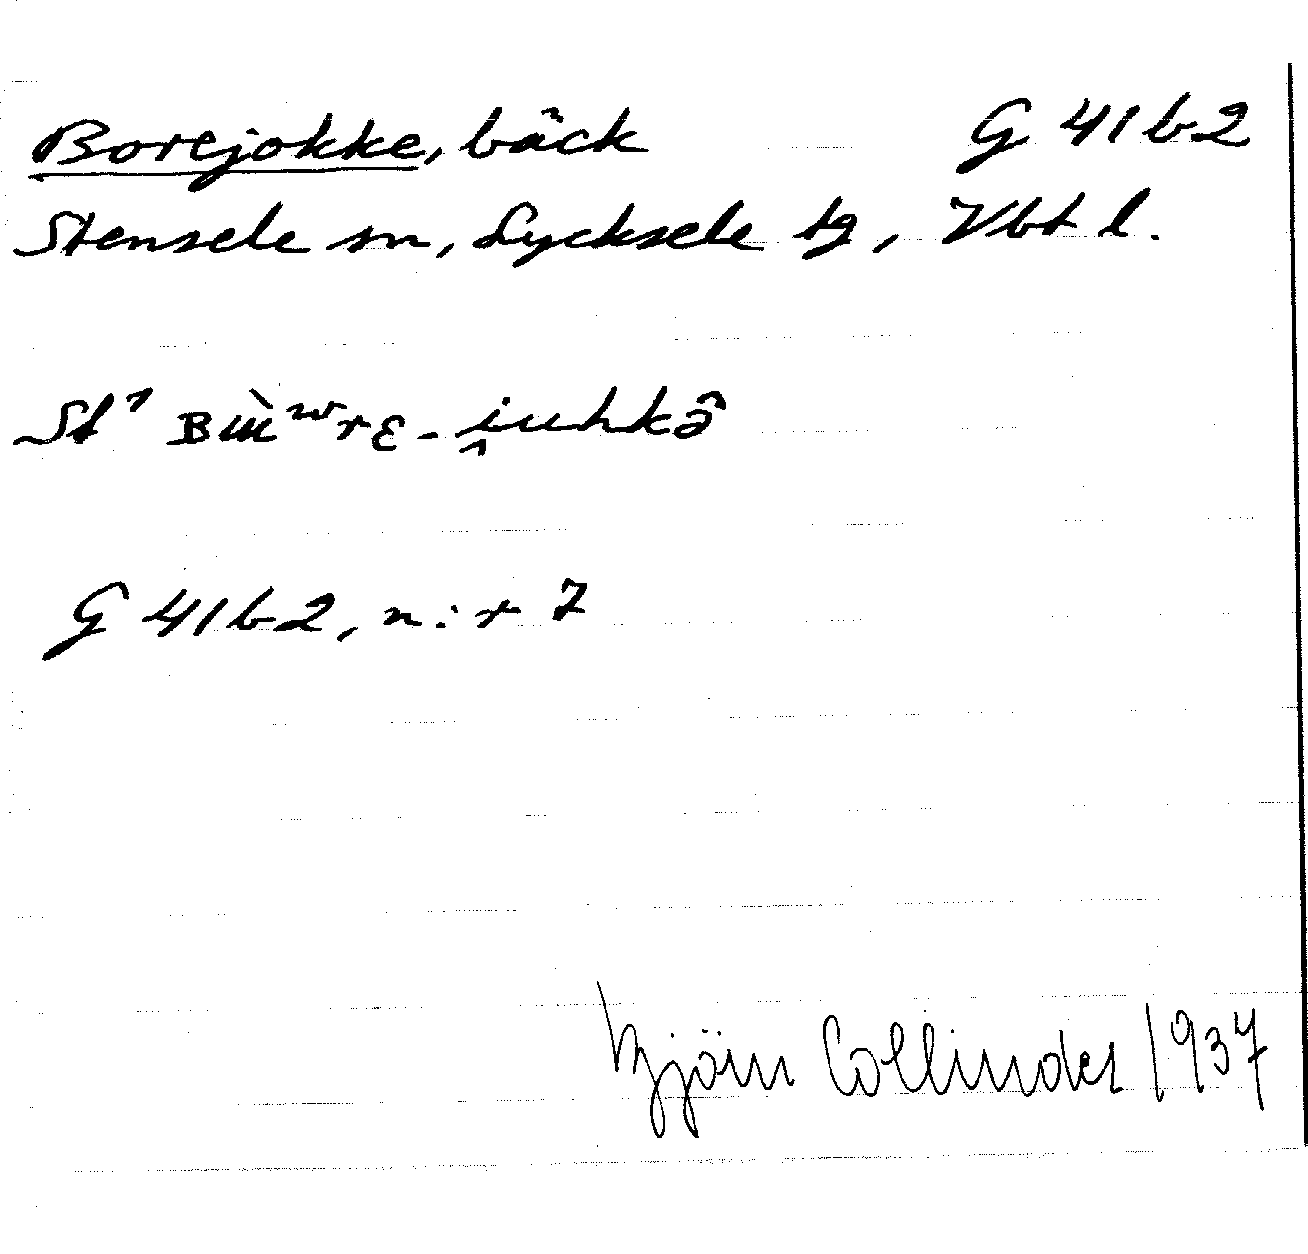 Borejokke, bäck G 41 b 2
Stensele sn, Lycksele tg, Vbt l.
St¹ ʙɯ̀ʷrɛ-i̭uhkə̂
G 41 b 2, n:r 7
Björn Collinder 1937